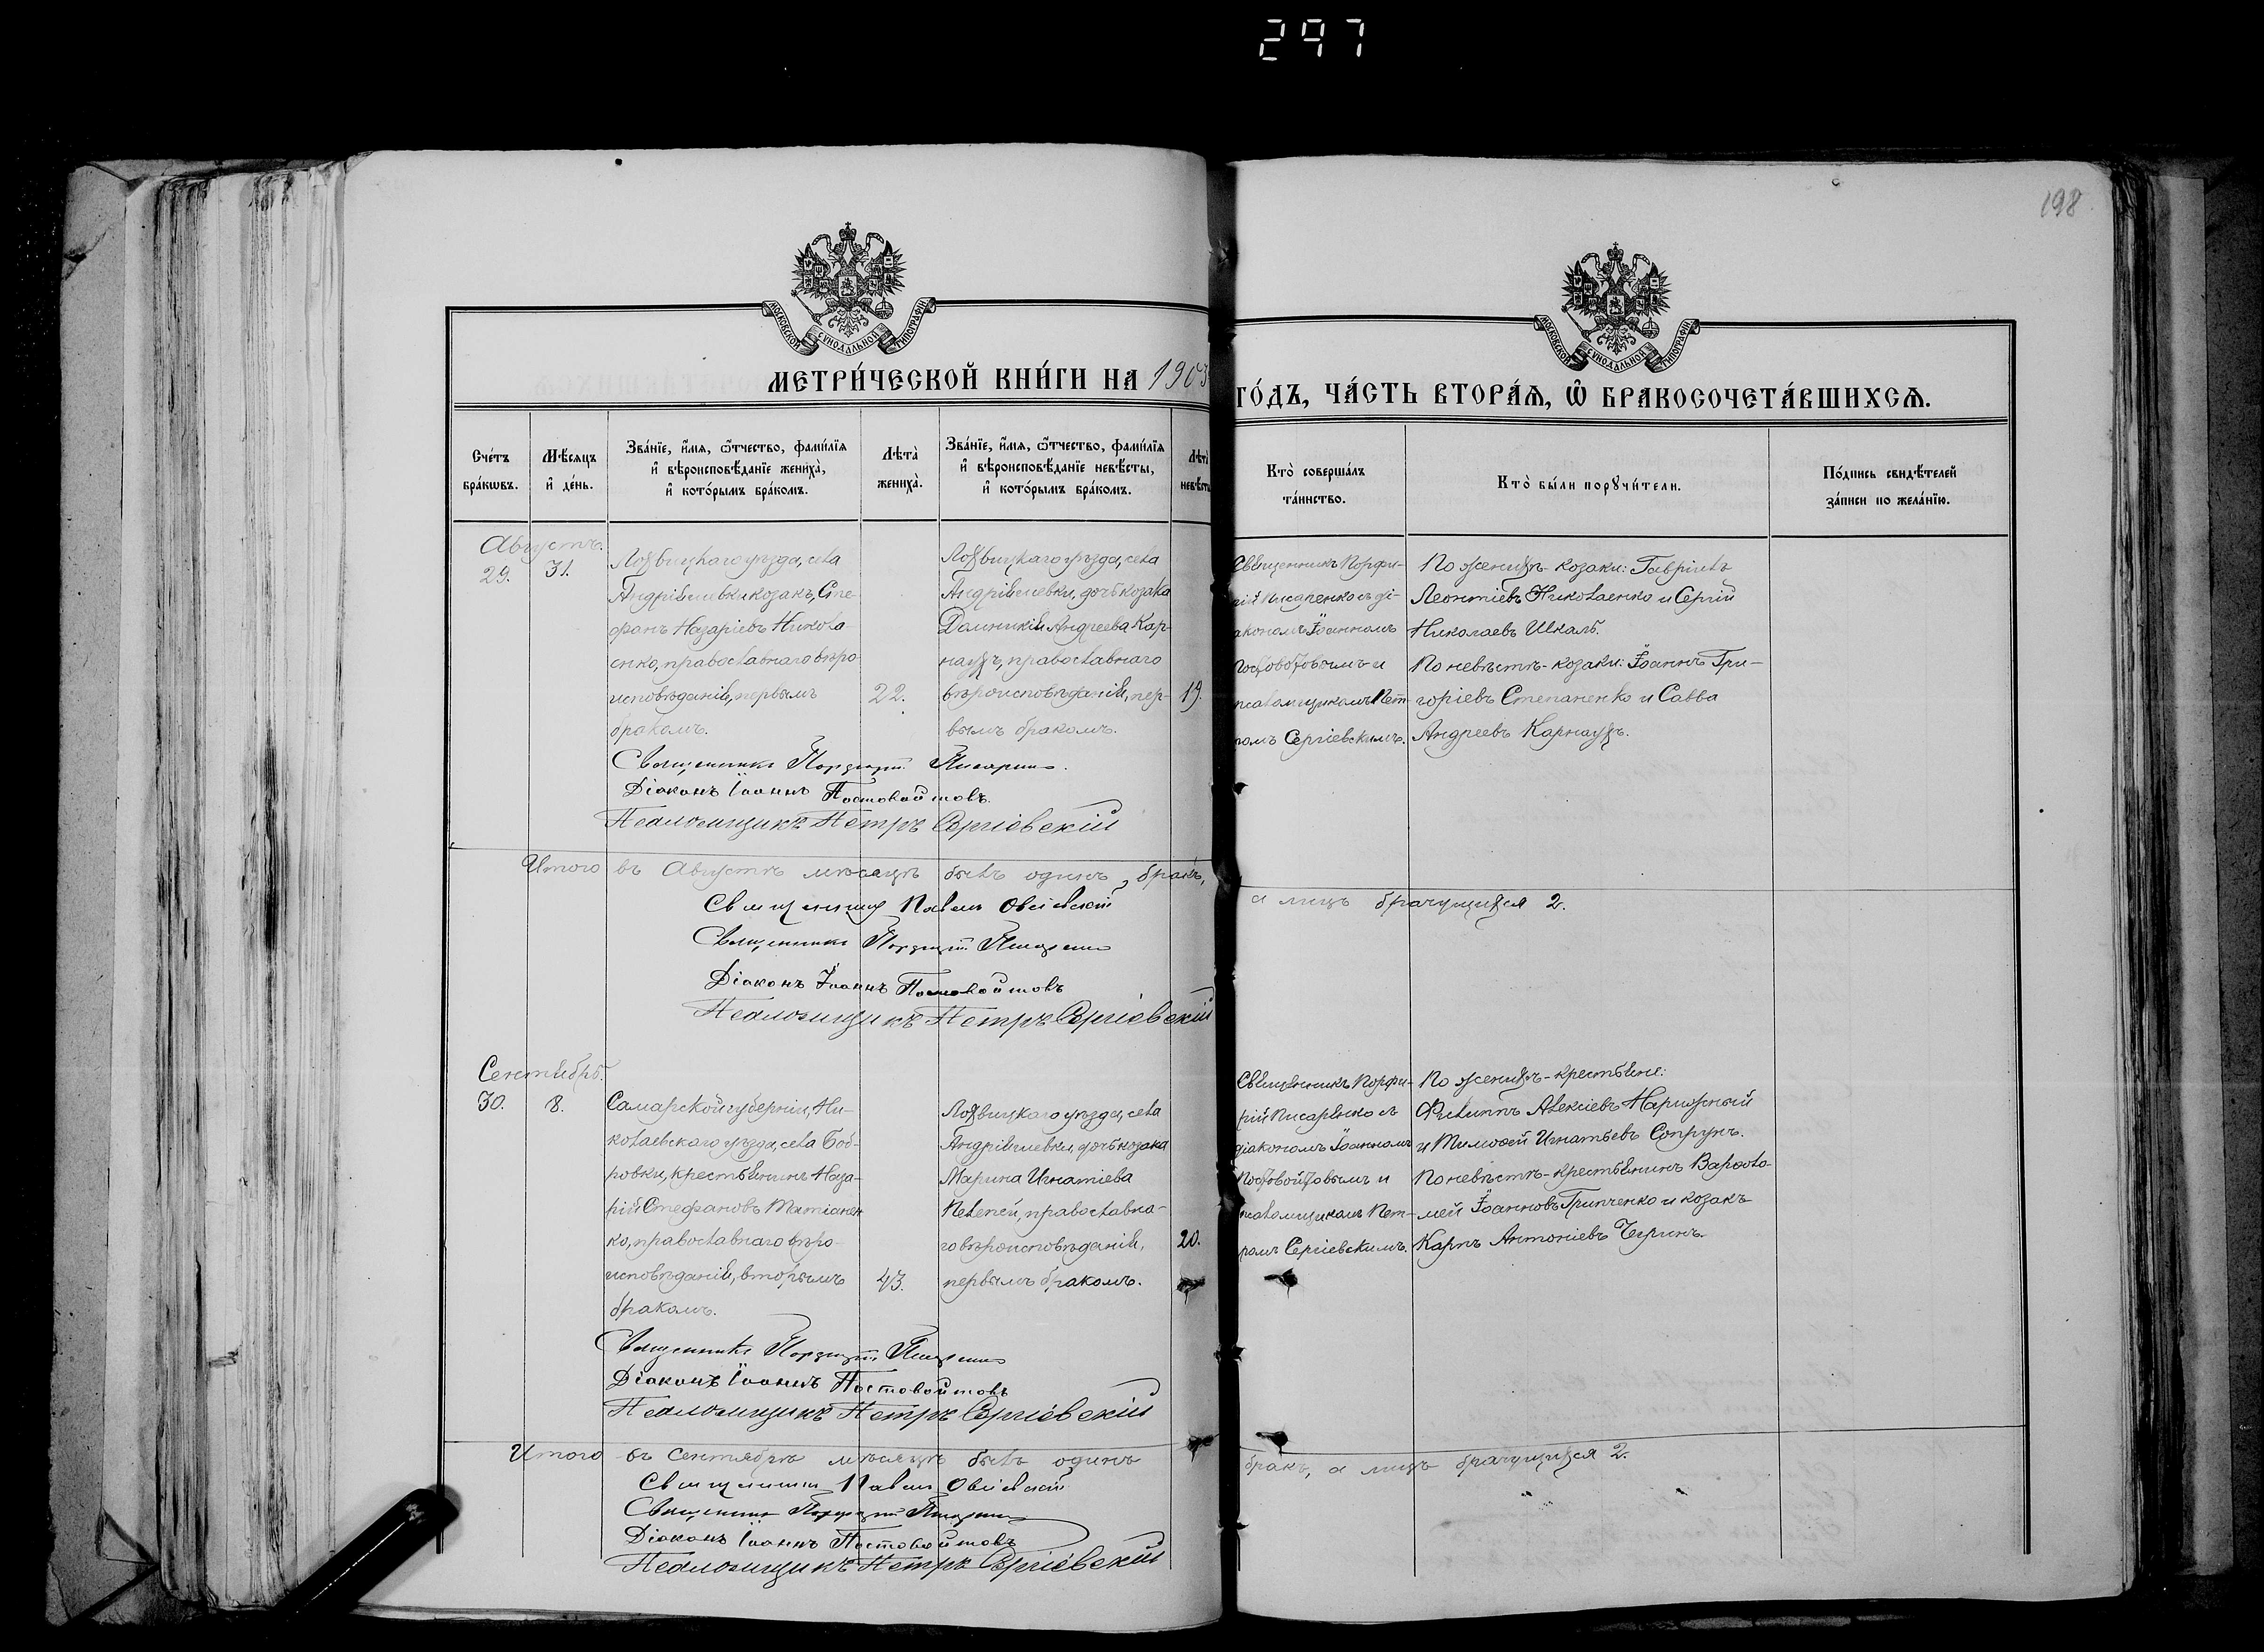 297
198
МОСКОВСКОЙ СѴНОДАЛЬНОЙ ТИПОГРАФІИ
МОСКОВСКОЙ СѴНОДАЛЬНОЙ ТИПОГРАФІИ
МЕТРИ́ЧЕСКОЙ КНИ́ГИ НА 1903
ГО́ДЪ, ЧА́СТЬ ВТОРА́Ѧ, Ѽ БРАКОСОЧЕТА́ВШИХСѦ.
Сче́тъ
бра́кѡвъ.
Мѣ́сяцъ
и҆ де́нь.
Зва́нїе, и҆́мѧ, ѻ҆́тчество, фами́лїѧ
и҆ вѣроисповѣ́данїе жениха̀,
и҆ кото́рымъ бра́комъ.
Лѣта̀
жениха̀.
Зва́нїе, и҆́мѧ, ѻ҆́тчество, фами́лїѧ
и҆ вѣроисповѣ́данїе невѣ́сты,
и҆ кото́рымъ бра́комъ.
Лѣта̀
невѣсты
Кто̀ соверша́лъ
та́инство.
Кто̀ бы́ли порꙋчи́тели.
По́дпись свидѣ́телей
за́писи по жела́нїю.
Августъ.
29.
31.
Лохвицкаго уѣзда, села
Андріяшевки козакъ, Сте-
фанъ Назаріевъ Никола-
енко, православнаго вѣро-
исповѣданія, первымъ
бракомъ.
22.
Лохвицкаго уѣзда, села
Андріяшевки, дочь козака
Домникія Андреева Кар-
наухъ, православнаго
вѣроисповѣданія, пер-
вымъ бракомъ.
19.
Священникъ Порфи-
рій Писаренко съ ді-
акономъ Іоанномъ
Постовойтовымъ и
псаломщикомъ Пет-
ромъ Сергіевскимъ.
По женихѣ - козаки: Гавріилъ
Леонтіевъ Николаенко и Сергій
Николаевъ Шкаль.
По невѣстѣ - козаки: Іоаннъ Гри-
горіевъ Степаненко и Савва
Андреевъ Карнаухъ.
Священникъ Порфирій Писаренко.
Діаконъ Іоаннъ Постовойтовъ.
Псаломщикъ Петръ Сергіевскій
Итого въ Августѣ мѣсяцѣ былъ одинъ бракъ,
а лицъ брачущихся 2.
Священникъ Павелъ
Священникъ Порфирій Писаренко
Діаконъ Іоаннъ Постовойтовъ
Псаломщикъ Петръ Сергіевскій
Сентябрь.
30.
8.
Самарской губерніи, Ни-
колаевскаго уѣзда, села Боб-
ровки, крестьянинъ Наза-
рій Стефановъ Матіашен
ко, православнаго вѣро-
исповѣданія, вторымъ
бракомъ.
43.
Лохвицкаго уѣзда, села
Андріяшевки, дочь козака
Марина Игнатіева
Пелепей, православна-
го вѣроисповѣданія,
первымъ бракомъ.
20.
Священникъ Порфи-
рій Писаренко съ
діакономъ Іоанномъ
Постовойтовымъ и
псаломщикомъ Пет-
ромъ Сергіевскимъ.
По женихѣ - крестьяне:
Филиппъ Алексіевъ Нарижный
и Тимоѳей Игнатьевъ Сопрунъ.
По невѣстѣ - крестьянинъ Варѳоло-
мей Іоанновъ Гринченко и козакъ
Карпъ Антоніевъ Чугринъ.
Священникъ Порфирій Писаренко
Діаконъ Іоаннъ Постовойтовъ
Псаломщикъ Петръ Сергіевскій
Итого въ Сентябрѣ мѣсяцѣ былъ одинъ
бракъ, а лицъ брачущихся 2.
Священникъ Павелъ
Священникъ Порфирій Писаренко
Діаконъ Іоаннъ Постовойтовъ
Псаломщикъ Петръ Сергіевскій